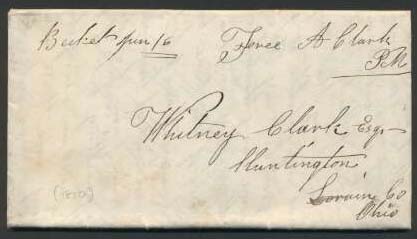 Becket Jun 16 Free A Clark
PM
Whitney Clark Esqr
Huntington
Lorain Co
Ohio